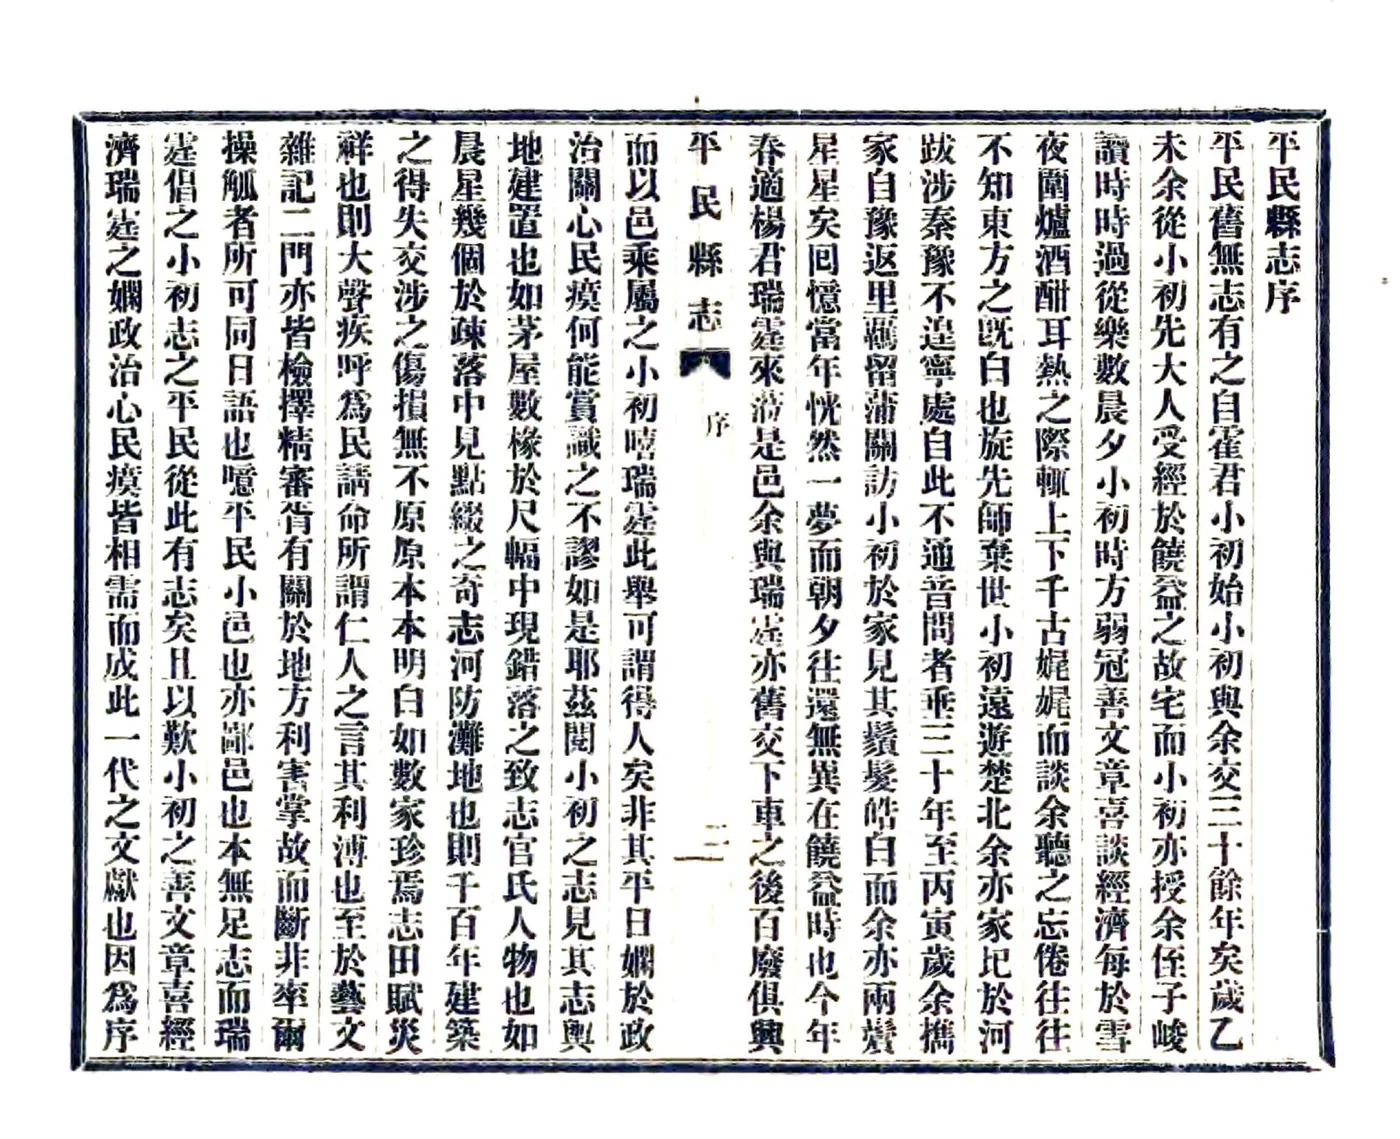 平民縣志序
平民舊無志有之自霍君小初始小初與余交三十餘年矣歲乙
未余從小初先大人受經於饒益之故宅而小初亦授余侄子峻
讀時時過從樂數晨夕小初時方弱冠善文章喜談經濟每於雪
夜圍爐酒酣耳熱之際輒上下千古娓娓而談余聽之忘倦往往
不知東方之既白也旋先師棄世小初遠遊楚北余亦家圮於河
跋涉秦豫不遑寧處自此不通音問者垂三十年至丙寅歲余攜
家自豫返里羈留蒲關訪小初於家見其鬚髮皓白而余亦兩鬢
星星矣回憶當年恍然一夢而朝夕往還無異在饒益時也今年
春適楊君瑞霆來蒞是邑余與瑞霆亦舊交下車之後百廢俱興
平民縣志
序
二
而以邑乘屬之小初嘻瑞霆此舉可謂得人矣非其平日嫻於政
治關心民瘼何能賞識之不謬如是耶茲閱小初之志見其志輿
地建置也如茅屋數椽於尺幅中現錯落之致志官氏人物也如
晨星幾個於疎落中見點綴之奇志河防灘地也則千百年建築
之得失交涉之傷損無不原原本本明白如數家珍焉志田賦災
祥也則大聲疾呼爲民請命所謂仁人之言其利溥也至於藝文
雜記二門亦皆檢擇精審胥有關於地方利害掌故而斷非率爾
操觚者所可同日語也噫平民小邑也亦鄙邑也本無足志而瑞
霆倡之小初志之平民從此有志矣且以歎小初之善文章喜經
濟瑞霆之嫻政治心民瘼皆相需而成此一代之文獻也因爲序